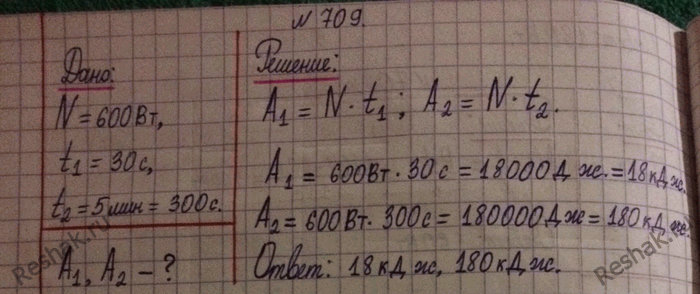 N 709.
Дано:
N = 600Вт,
t₁ = 30с,
t₂ = 5мин = 300с.
A₁, A₂ – ?
Решение:
A₁ = N · t₁; A₂ = N · t₂.
A₁ = 600Вт · 30с = 18000Дж. = 18кДж.
A₂ = 600Вт · 300с = 180000Дж = 180кДж.
Ответ: 18кДж, 180кДж.
Reshak.ru
Reshak.ru